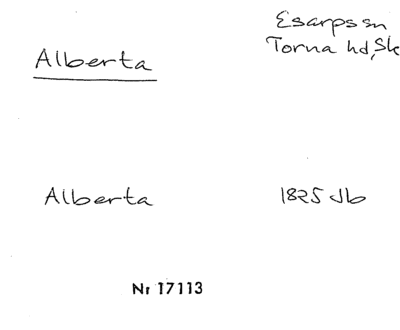 Esarps sn
Torna hd, Sk
Alberta
Alberta
1825 Jb
Nr 17113